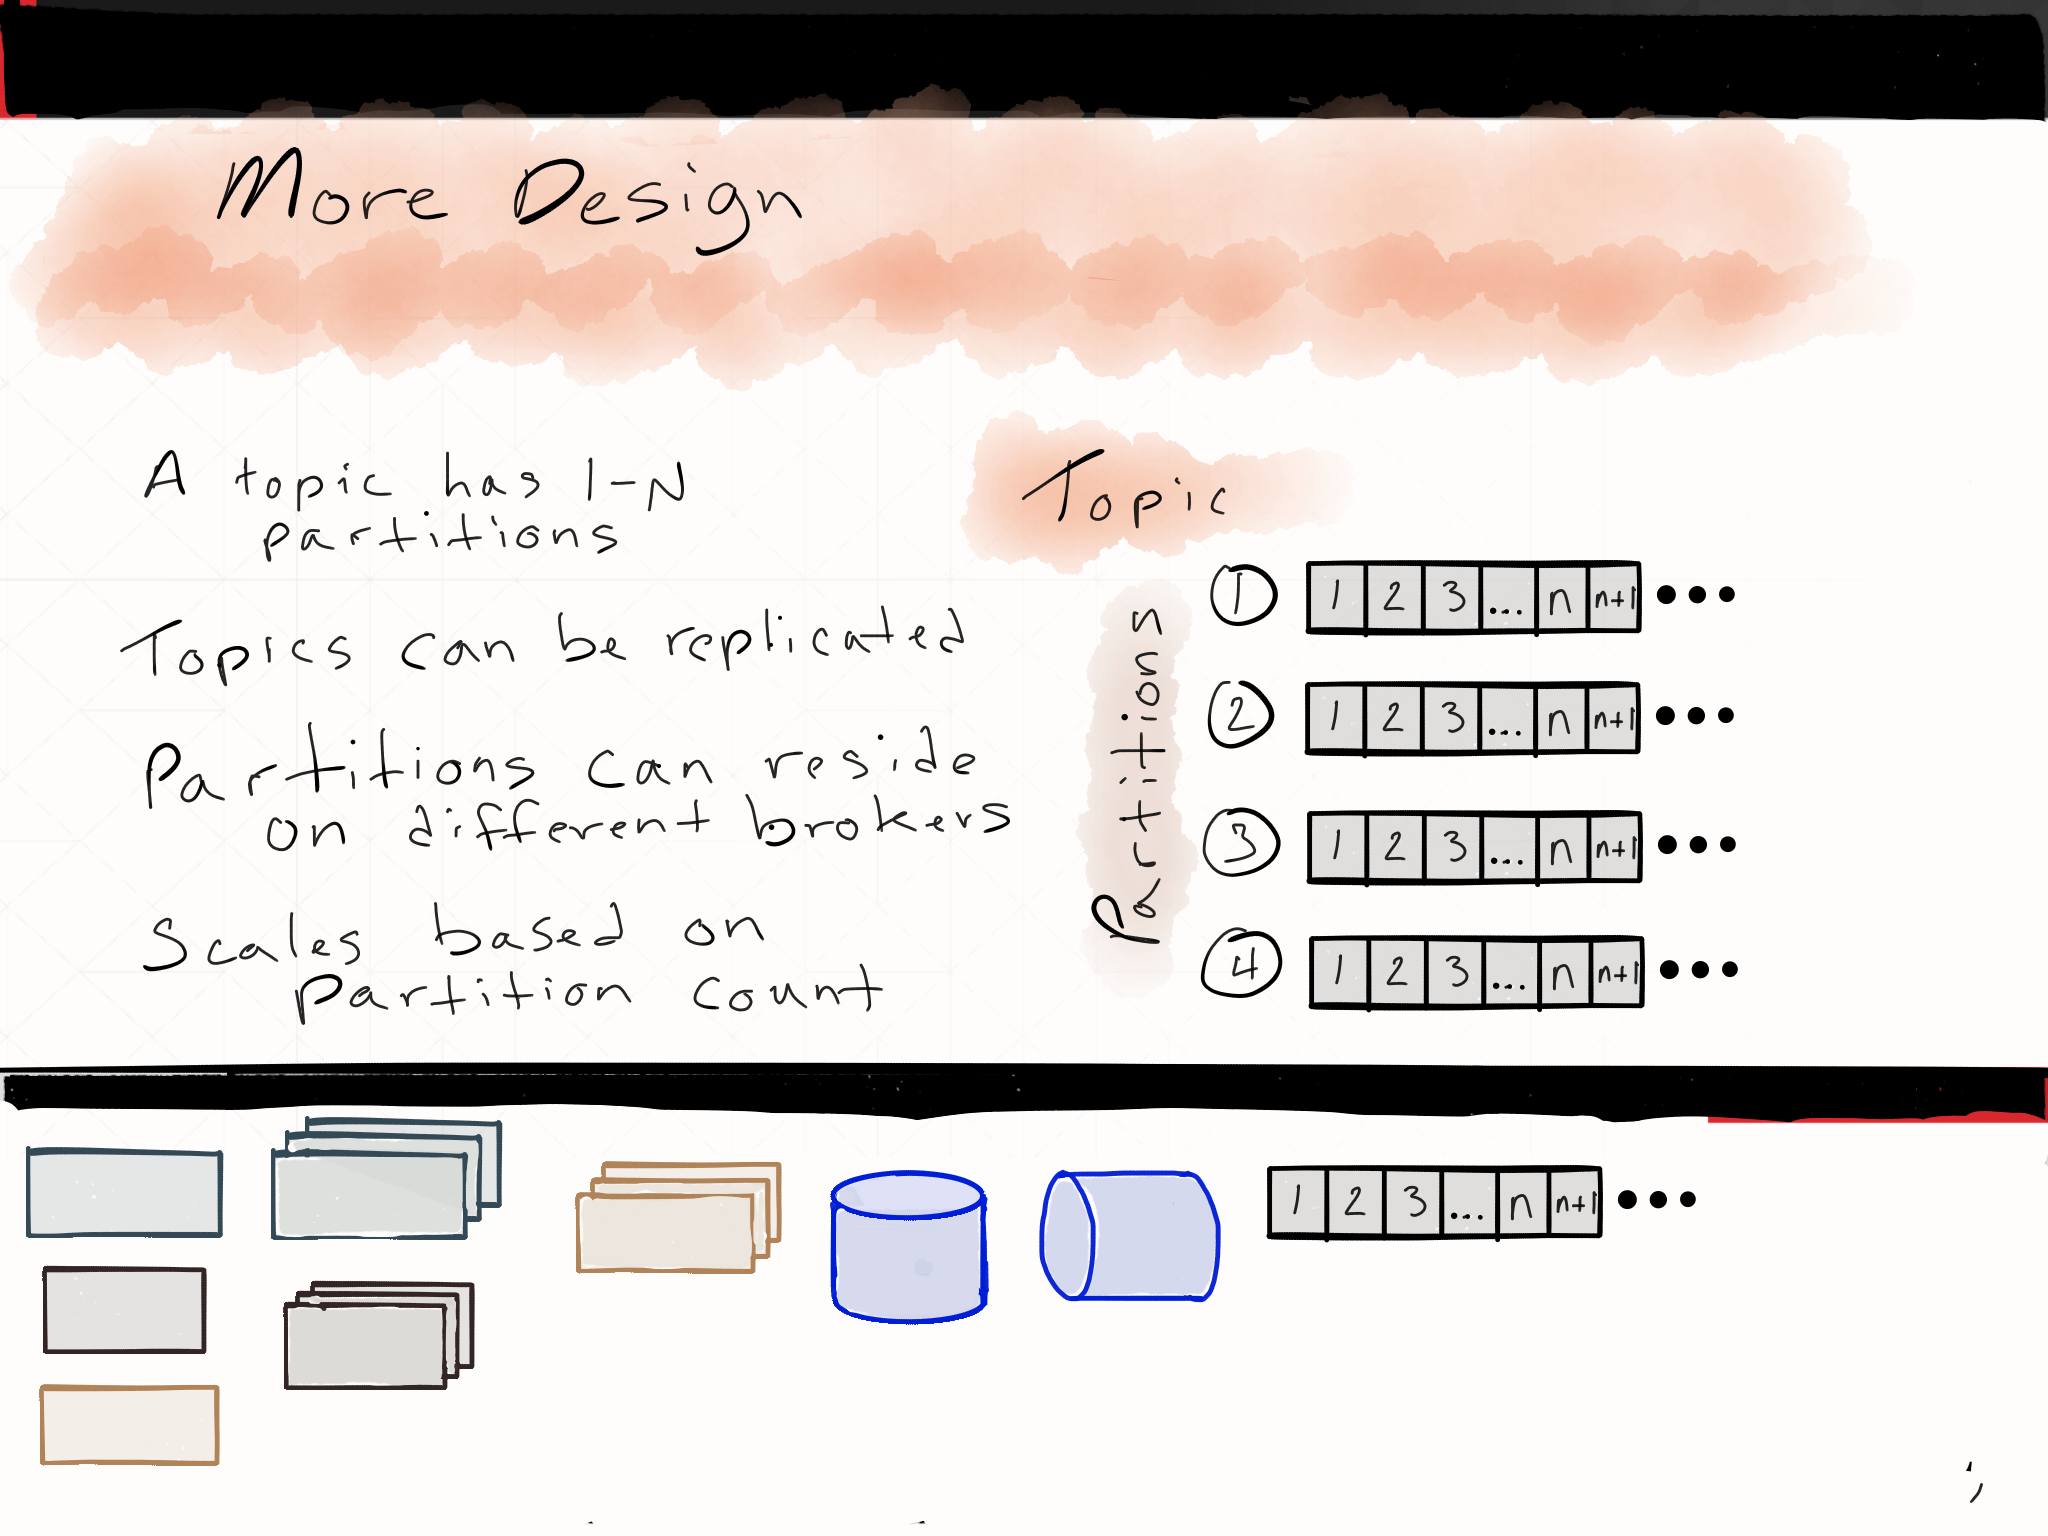 More Design
A topic has 1-N
partitions
Topics can be replicated
Partitions can reside
on different brokers
Scales based on
Partition count
Topic
Partitions
1 1 2 3 ... n n+1 •••
2 1 2 3 ... n n+1 •••
3 1 2 3 ... n n+1 •••
4 1 2 3 ... n n+1 •••
1 2 3 ... n n+1 •••